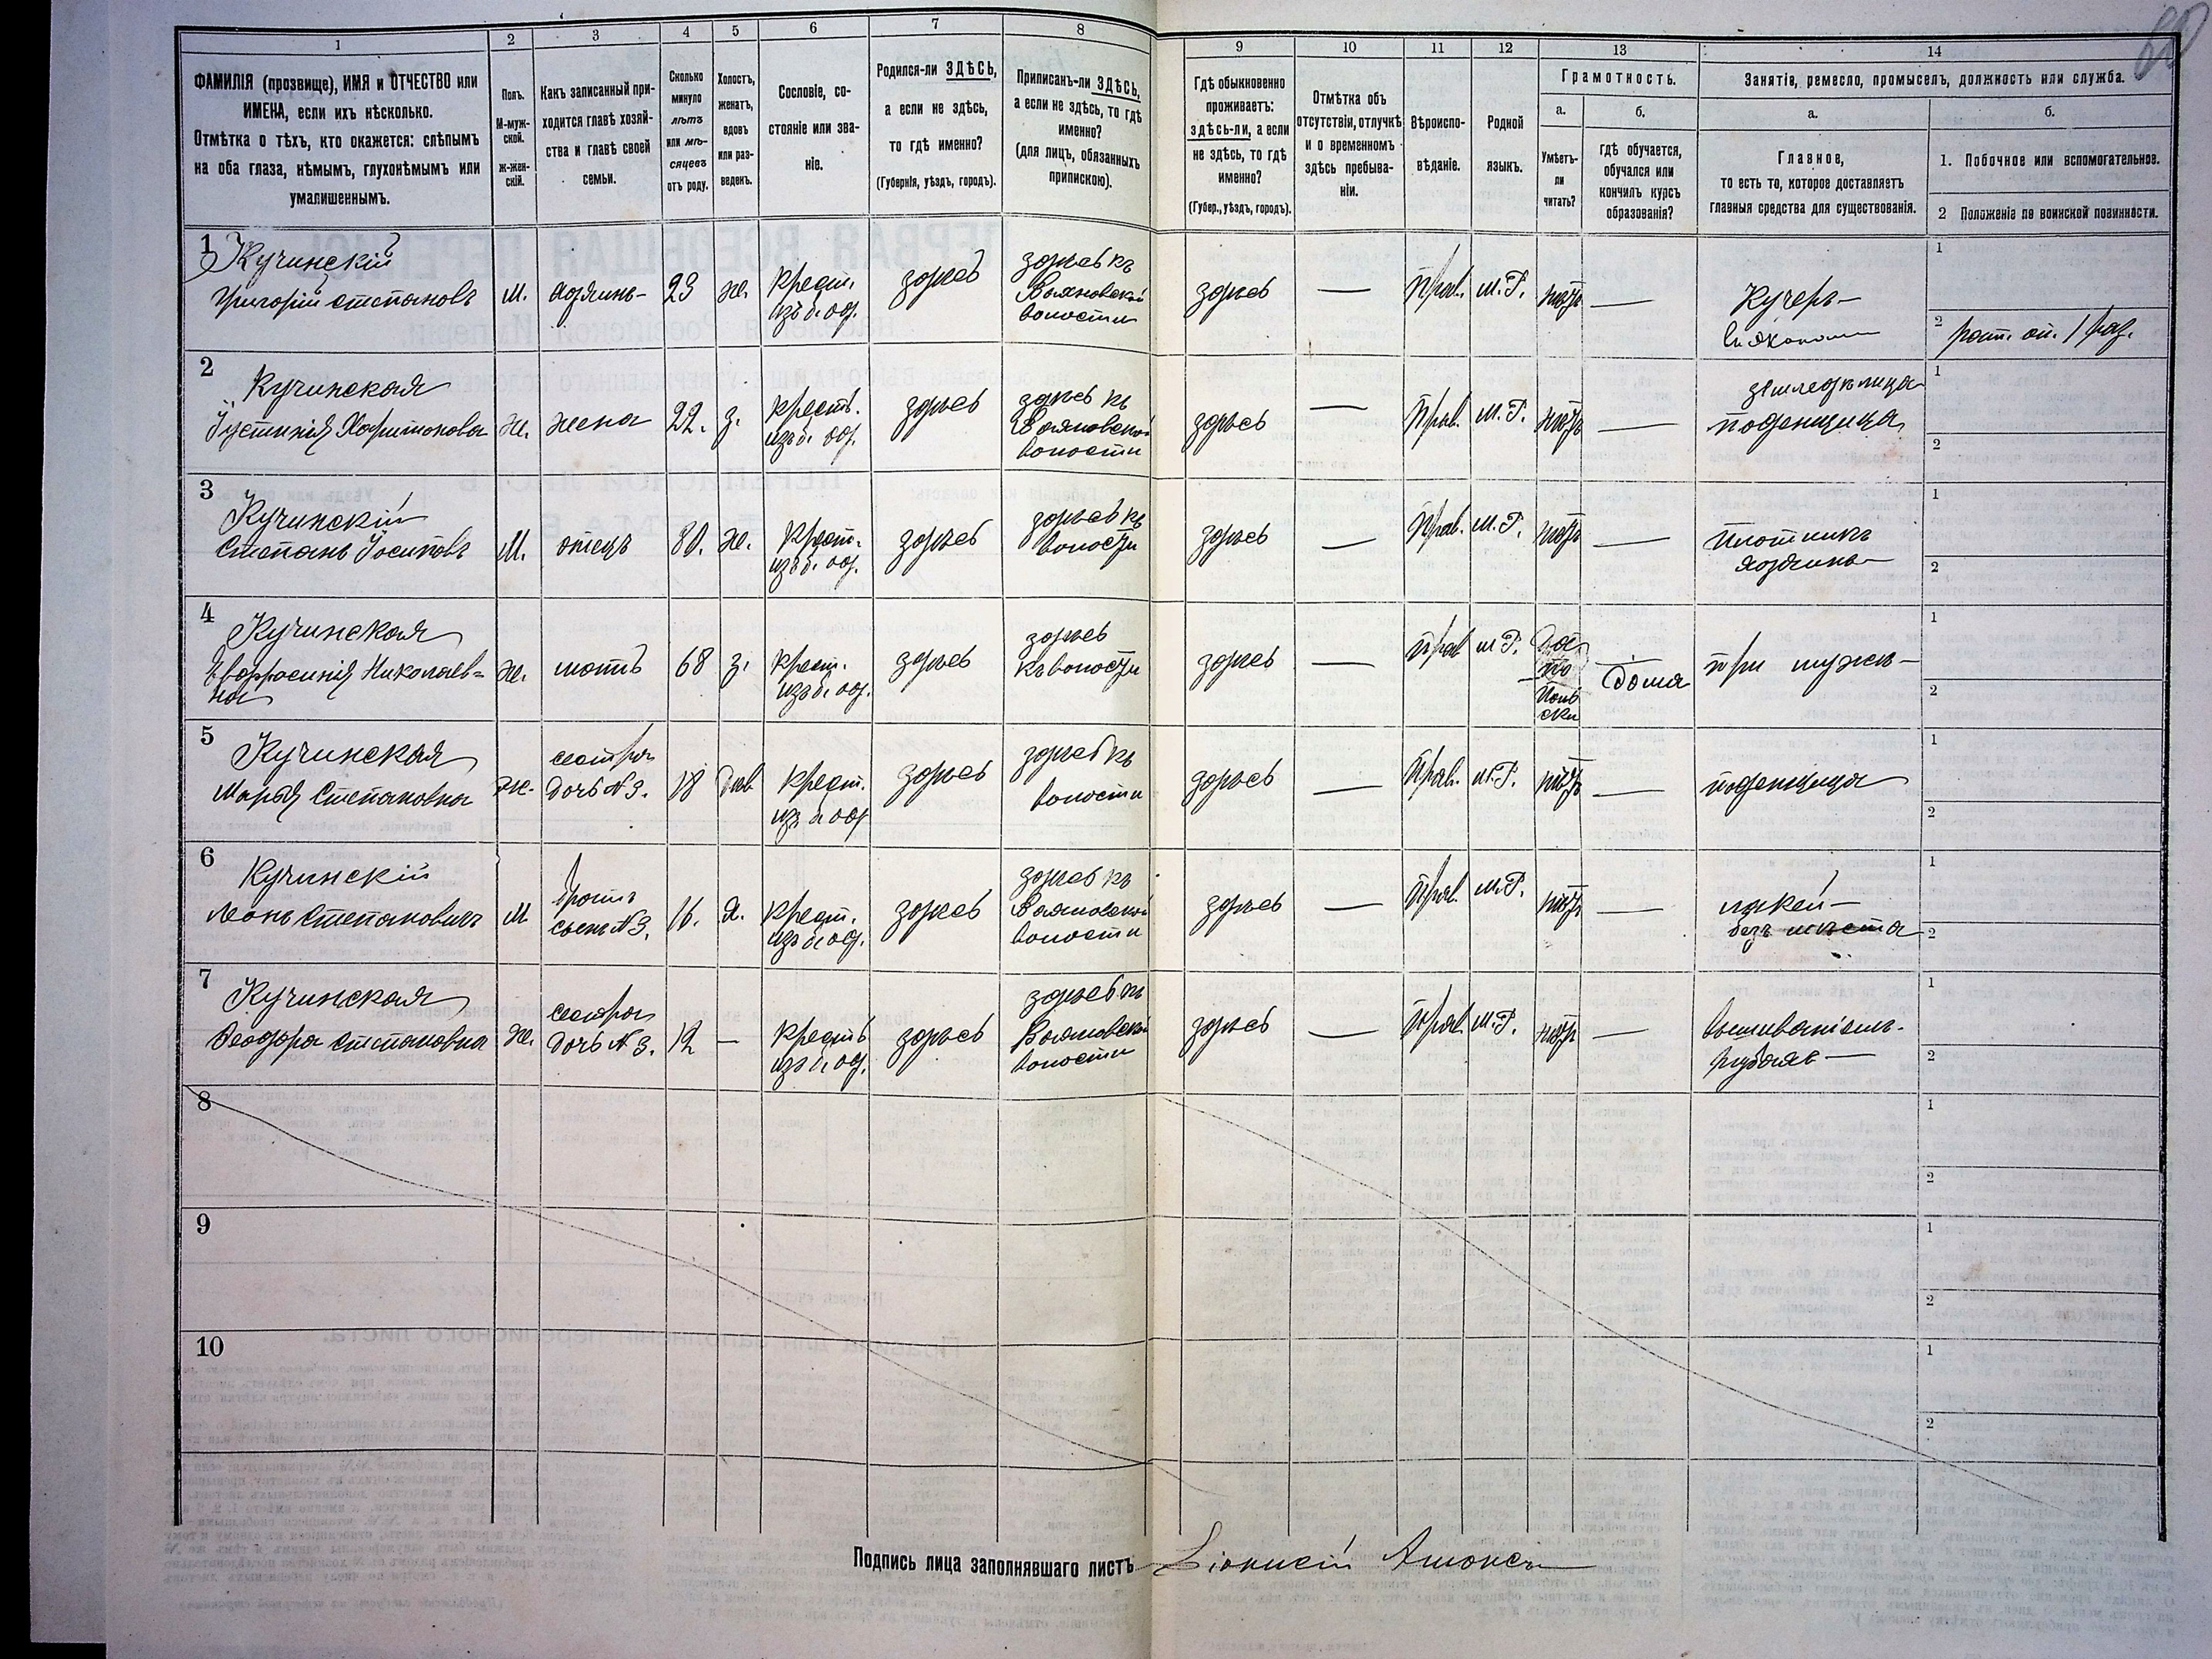 1
2
3
4
5
6
7
8
ФАМИЛІЯ (прозвище), ИМЯ и ОТЧЕСТВО или
ИМЕНА, если ихъ нѣсколько.
Отмѣтка о тѣхъ, кто окажется: слѣпымъ
на оба глаза, нѣмымъ, глухонѣмымъ или
умалишеннымъ.
Полъ.
М-муж-
ской.
ж-жен-
скій.
Какъ записанный при-
ходится главѣ хозяй-
ства и главѣ своей
семьи.
Сколько
минуло
лѣтъ
или мѣ-
сяцевъ
отъ роду.
Холостъ,
женатъ,
вдовъ
или раз-
веденъ.
Сословіе, со-
стояніе или зва-
ніе.
Родился-ли ЗДѢСЬ,
а если не здѣсь,
то гдѣ именно?
(Губернія, уѣздъ, городъ).
Приписанъ-ли ЗДѢСЬ,
а если не здѣсь, то гдѣ
именно?
(для лицъ, обязанныхъ
припискою).
9
10
11
12
13
14
Гдѣ обыкновенно
проживаетъ:
здѣсь-ли, а если
не здѣсь, то гдѣ
именно?
(Губер., уѣздъ, городъ).
Отмѣтка объ
отсутствіи, отлучкѣ
и о временномъ
здѣсь пребыва-
ніи.
Вѣроиспо-
вѣданіе.
Родной
языкъ.
Грамотность.
а.
Умѣетъ-
ли
читать?
б.
гдѣ обучается,
обучался или
кончилъ курсъ
образованія?
Занятія, ремесло, промыселъ, должность или служба.
а.
Главное,
то есть то, которое доставляетъ
главныя средства для существованія.
б.
1. Побочное или вспомогательное.
2 Положеніе по воинской повинности.
1
Кучинскій
Григорій Степановъ
м.
хозяинъ
23
ж.
Крест.
изъ б. одв.
здѣсь
здѣсь къ
волости
здѣсь
—
Прав.
М. Р.
нѣтъ
—
Кучеръ
1
2
2
Кучинская
Іустинія Харитонова
ж.
жена
22.
з.
крест.
здѣсь
здѣсь къ
волости
здѣсь
—
Прав.
М. Р.
нѣтъ
—
земледѣлица
поденщица
1
2
3
Кучинскій
Степанъ Іосиповъ
М.
отецъ
80.
ж.
Крест.
здѣсь
здѣсь къ
волости
здѣсь
—
Прав.
М. Р.
нѣтъ
—
Плотникъ
хозяинъ
1
2
4
Кучинская
Евфросинія Николаев=
на
ж.
мать
68
з.
крест.
здѣсь
здѣсь
къ волости
здѣсь
—
Прав
М Р.
Да
Поль
ски
Дома
при мужѣ
1
2
5
Кучинская
Марья Степановна
ж.
сестра
дочь №3.
18
Дѣв
крест.
здѣсь
здѣсь къ
волости
здѣсь
—
Прав.
М. Р.
нѣтъ
—
поденщица
1
2
6
Кучинскій
Леонъ Степановичъ
М
братъ
сынъ №3.
16.
Х.
Крест.
здѣсь
здѣсь къ
волости
здѣсь
—
Прав.
М. Р.
нѣтъ
—
лакей
безъ мѣста
1
2
7
Кучинская
Ѳеодора Степановна
ж.
сестра
дочь №3.
12
—
крест
здѣсь
здѣсь къ
волости
здѣсь
—
Прав.
М. Р.
нѣтъ
—
вышиваніемъ
рубахъ
1
2
8
1
2
9
1
2
10
1
2
Подпись лица заполнявшаго листъ
Діонисій